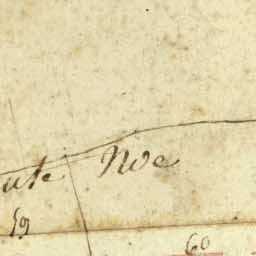 ute Noe
59
60